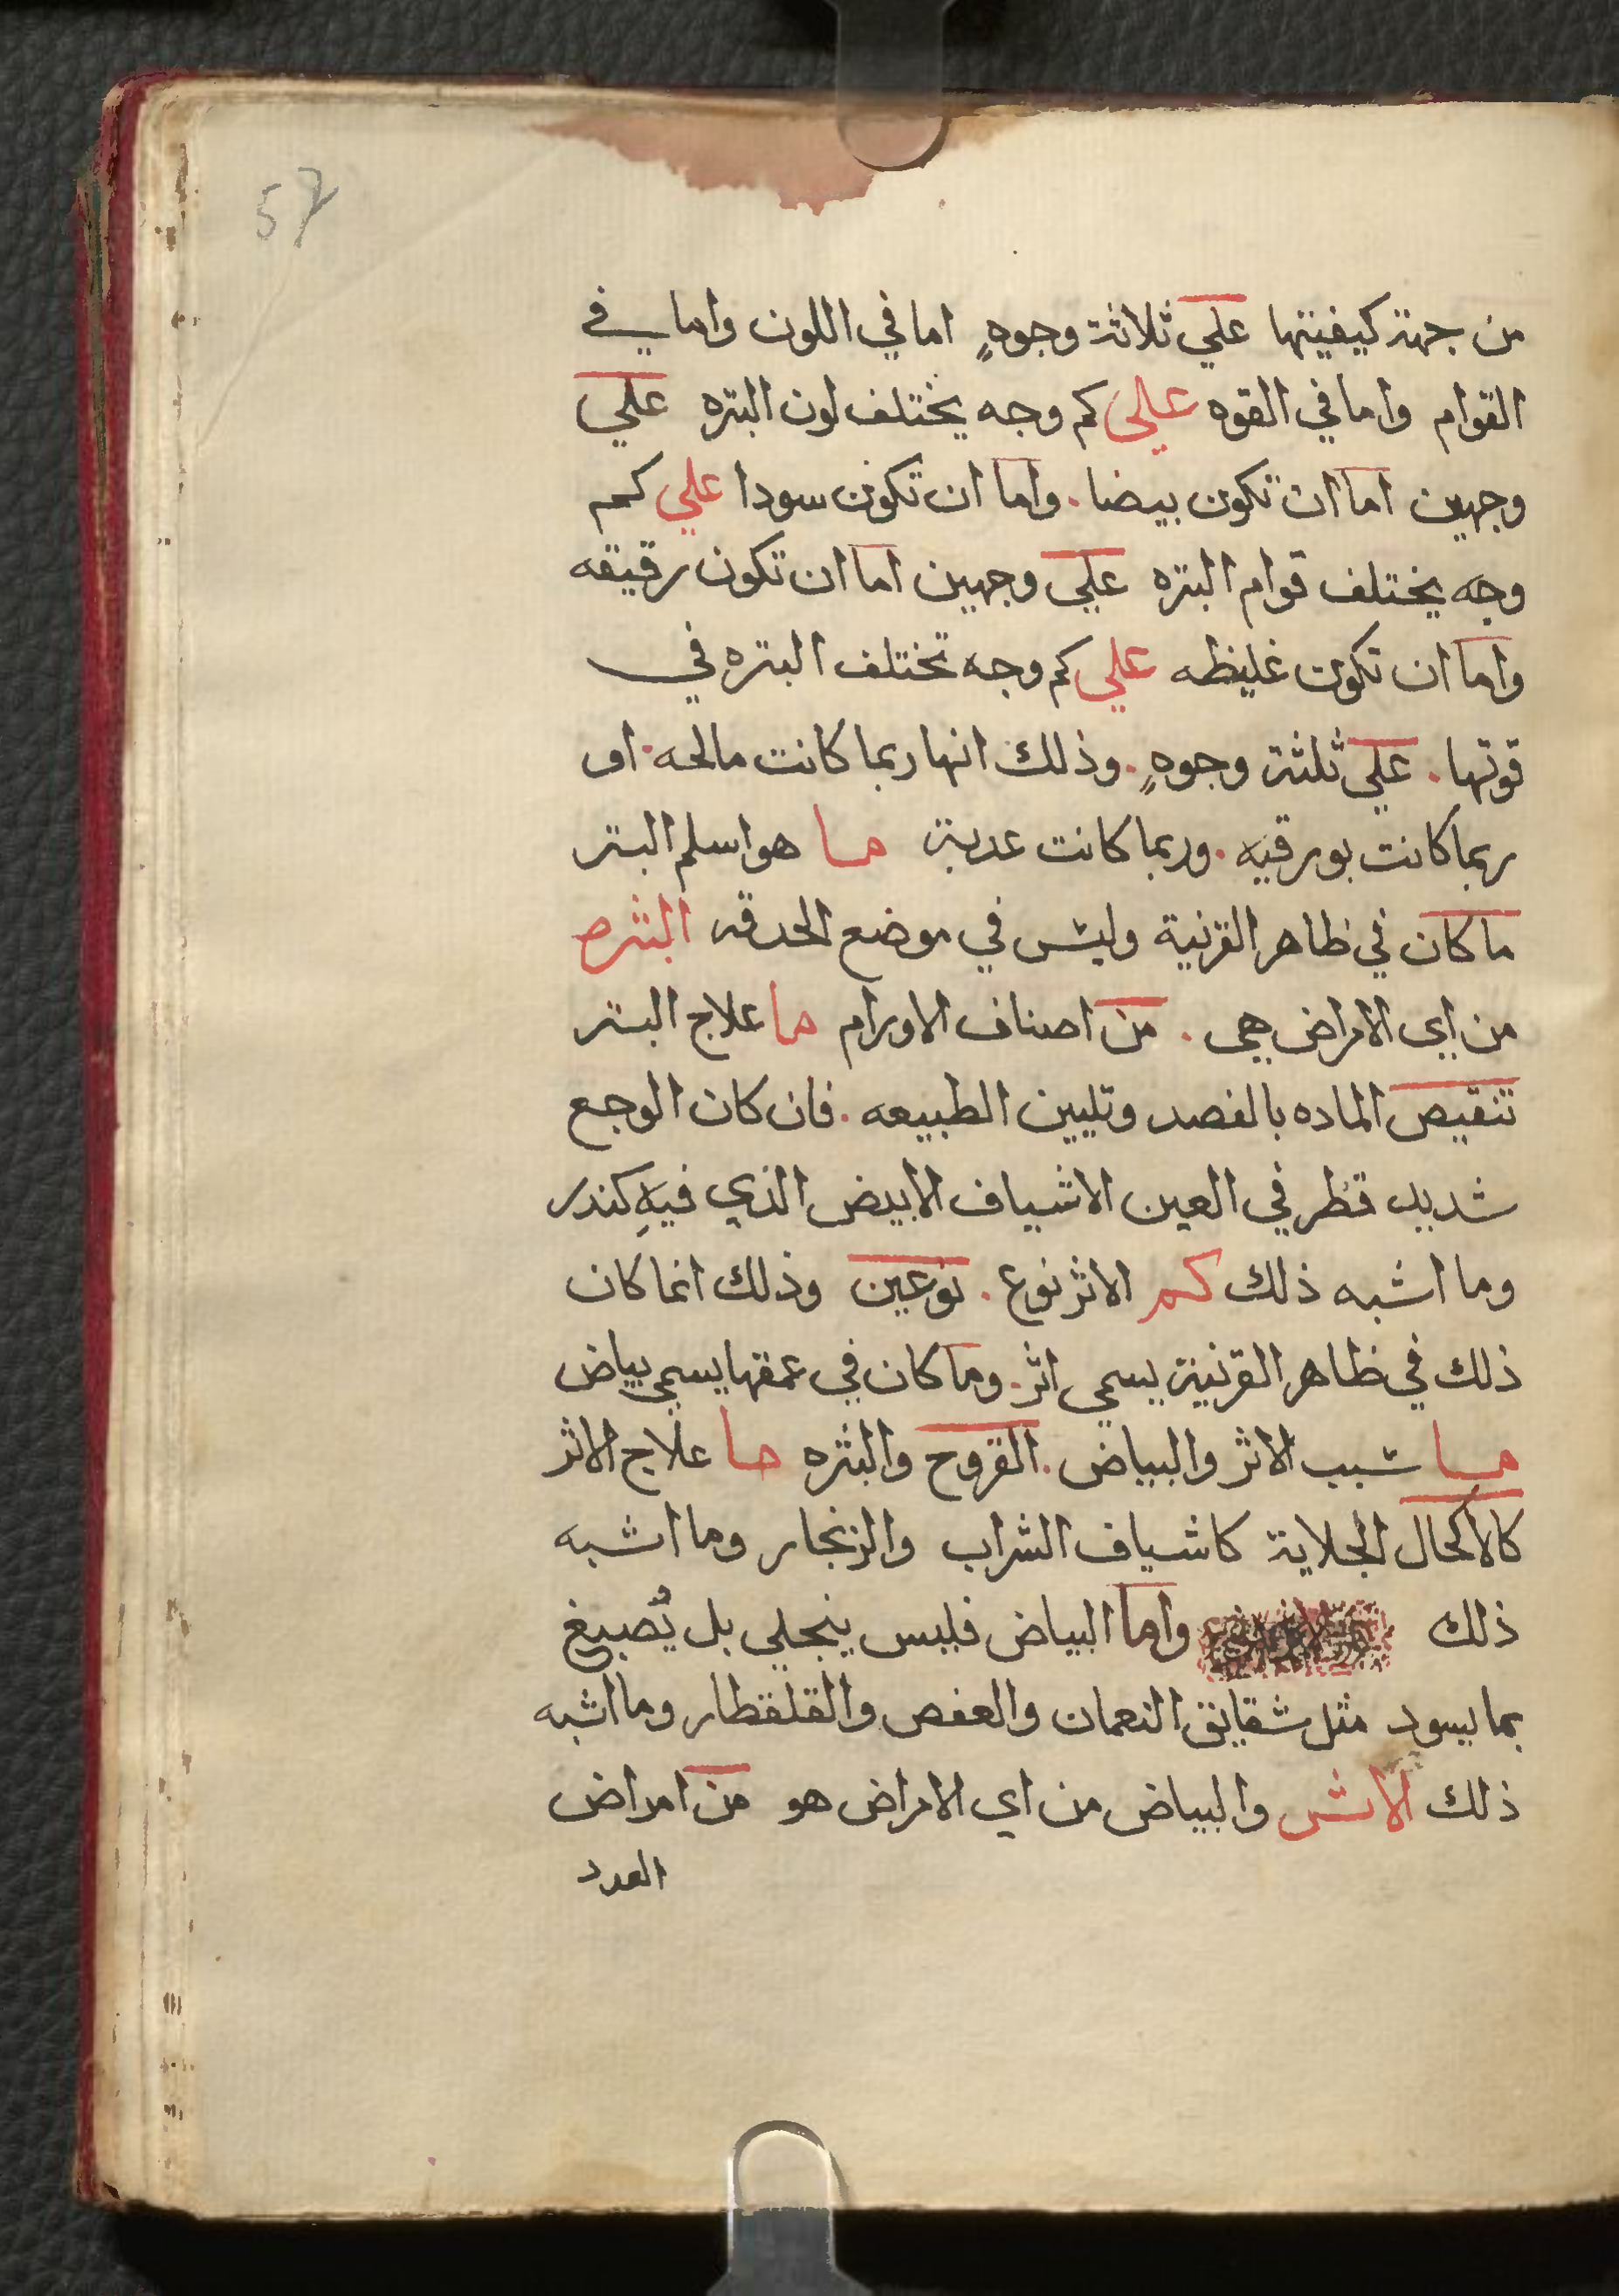 57
من جهة كيفيتها علي ثلاثة وجوهٍ اما في اللون واما في
القوام واما في القوه علي كم وجه يختلف لون البتره علي
وجهين اما ان تكون بيضا . واما ان تكون سودا علي كم
وجه يختلف قوام البتره علي وجهين اما ان تكون رقيقه
واما ان تكون غليظه علي كم وجه تختلف البتره في
قوتها . علي ثلثة وجوهٍ . وذلك انها ربما كانت مالحه . او
ربما كانت بورقيه . وربما كانت عدبة ما هو اسلم البتر
ما كان في ظاهر القرنية وليس في موضع الحدقه البثره
من اي الامراض هي . من اصناف الاورام ما علاج البتر
تنقيص الماده بالفصد وتليين الطبيعه . فان كان الوجع
شديد قطر في العين الاشياف الابيض الذي فيهِ كندر
وما اشبه ذلك كم الاثر نوع . نوعين وذلك انما كان
ذلك في ظاهر القرنية يسمي اثر . وما كان في عمقها يسمي بياض
ما سبب الاثر والبياض . القروح والبثره ما علاج الاثر
كالاكحال الجلاية كاشياف الشراب والزنجار وما اشبه
ذلك واما البياض فليس ينجلي بل يُصبغ
بما يسود مثل شقايق النعمان والعفص والقلقطار وما اشبه
ذلك الاثر والبياض من اي الامراض هو من امراض
العدد